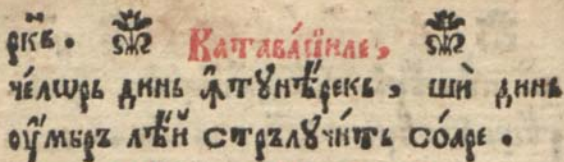 ркⷭ҇в. Катава́сїиле,
че́лѡрь динь ꙟ҆тꙋнѣ́рекь, шѝ динь
оу҆́мбръ лѣ́й стрълꙋчи́ть со́аре.